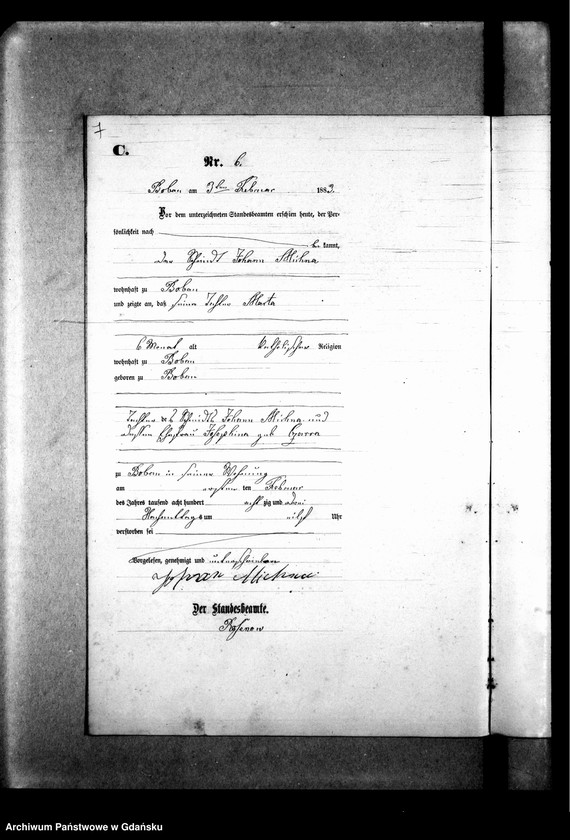 7
C.
Nr. 6.
Boban am 3ten Februar 1883.
Vor dem unterzeichneten Standesbeamten erschien heute, der Per-
sönlichkeit nach
kannt,
der Johann Michna
wohnhaft zu Boban
und zeigte an, daß seine Tochter Marta
6 Monat alt katholischer Religion
wohnhaft zu Boban
geboren zu Boban
Tochter des Johann Michna und
dessen Ehefrau Josephina geb
zu Boban in seiner Wohnung
am ersten ten Februar
des Jahres tausend acht hundert achtzig und drei
Nachmittags um Uhr
verstorben sei
Vorgelesen, genehmigt und unterschrieben
Johann Michna
Der Standesbeamte.